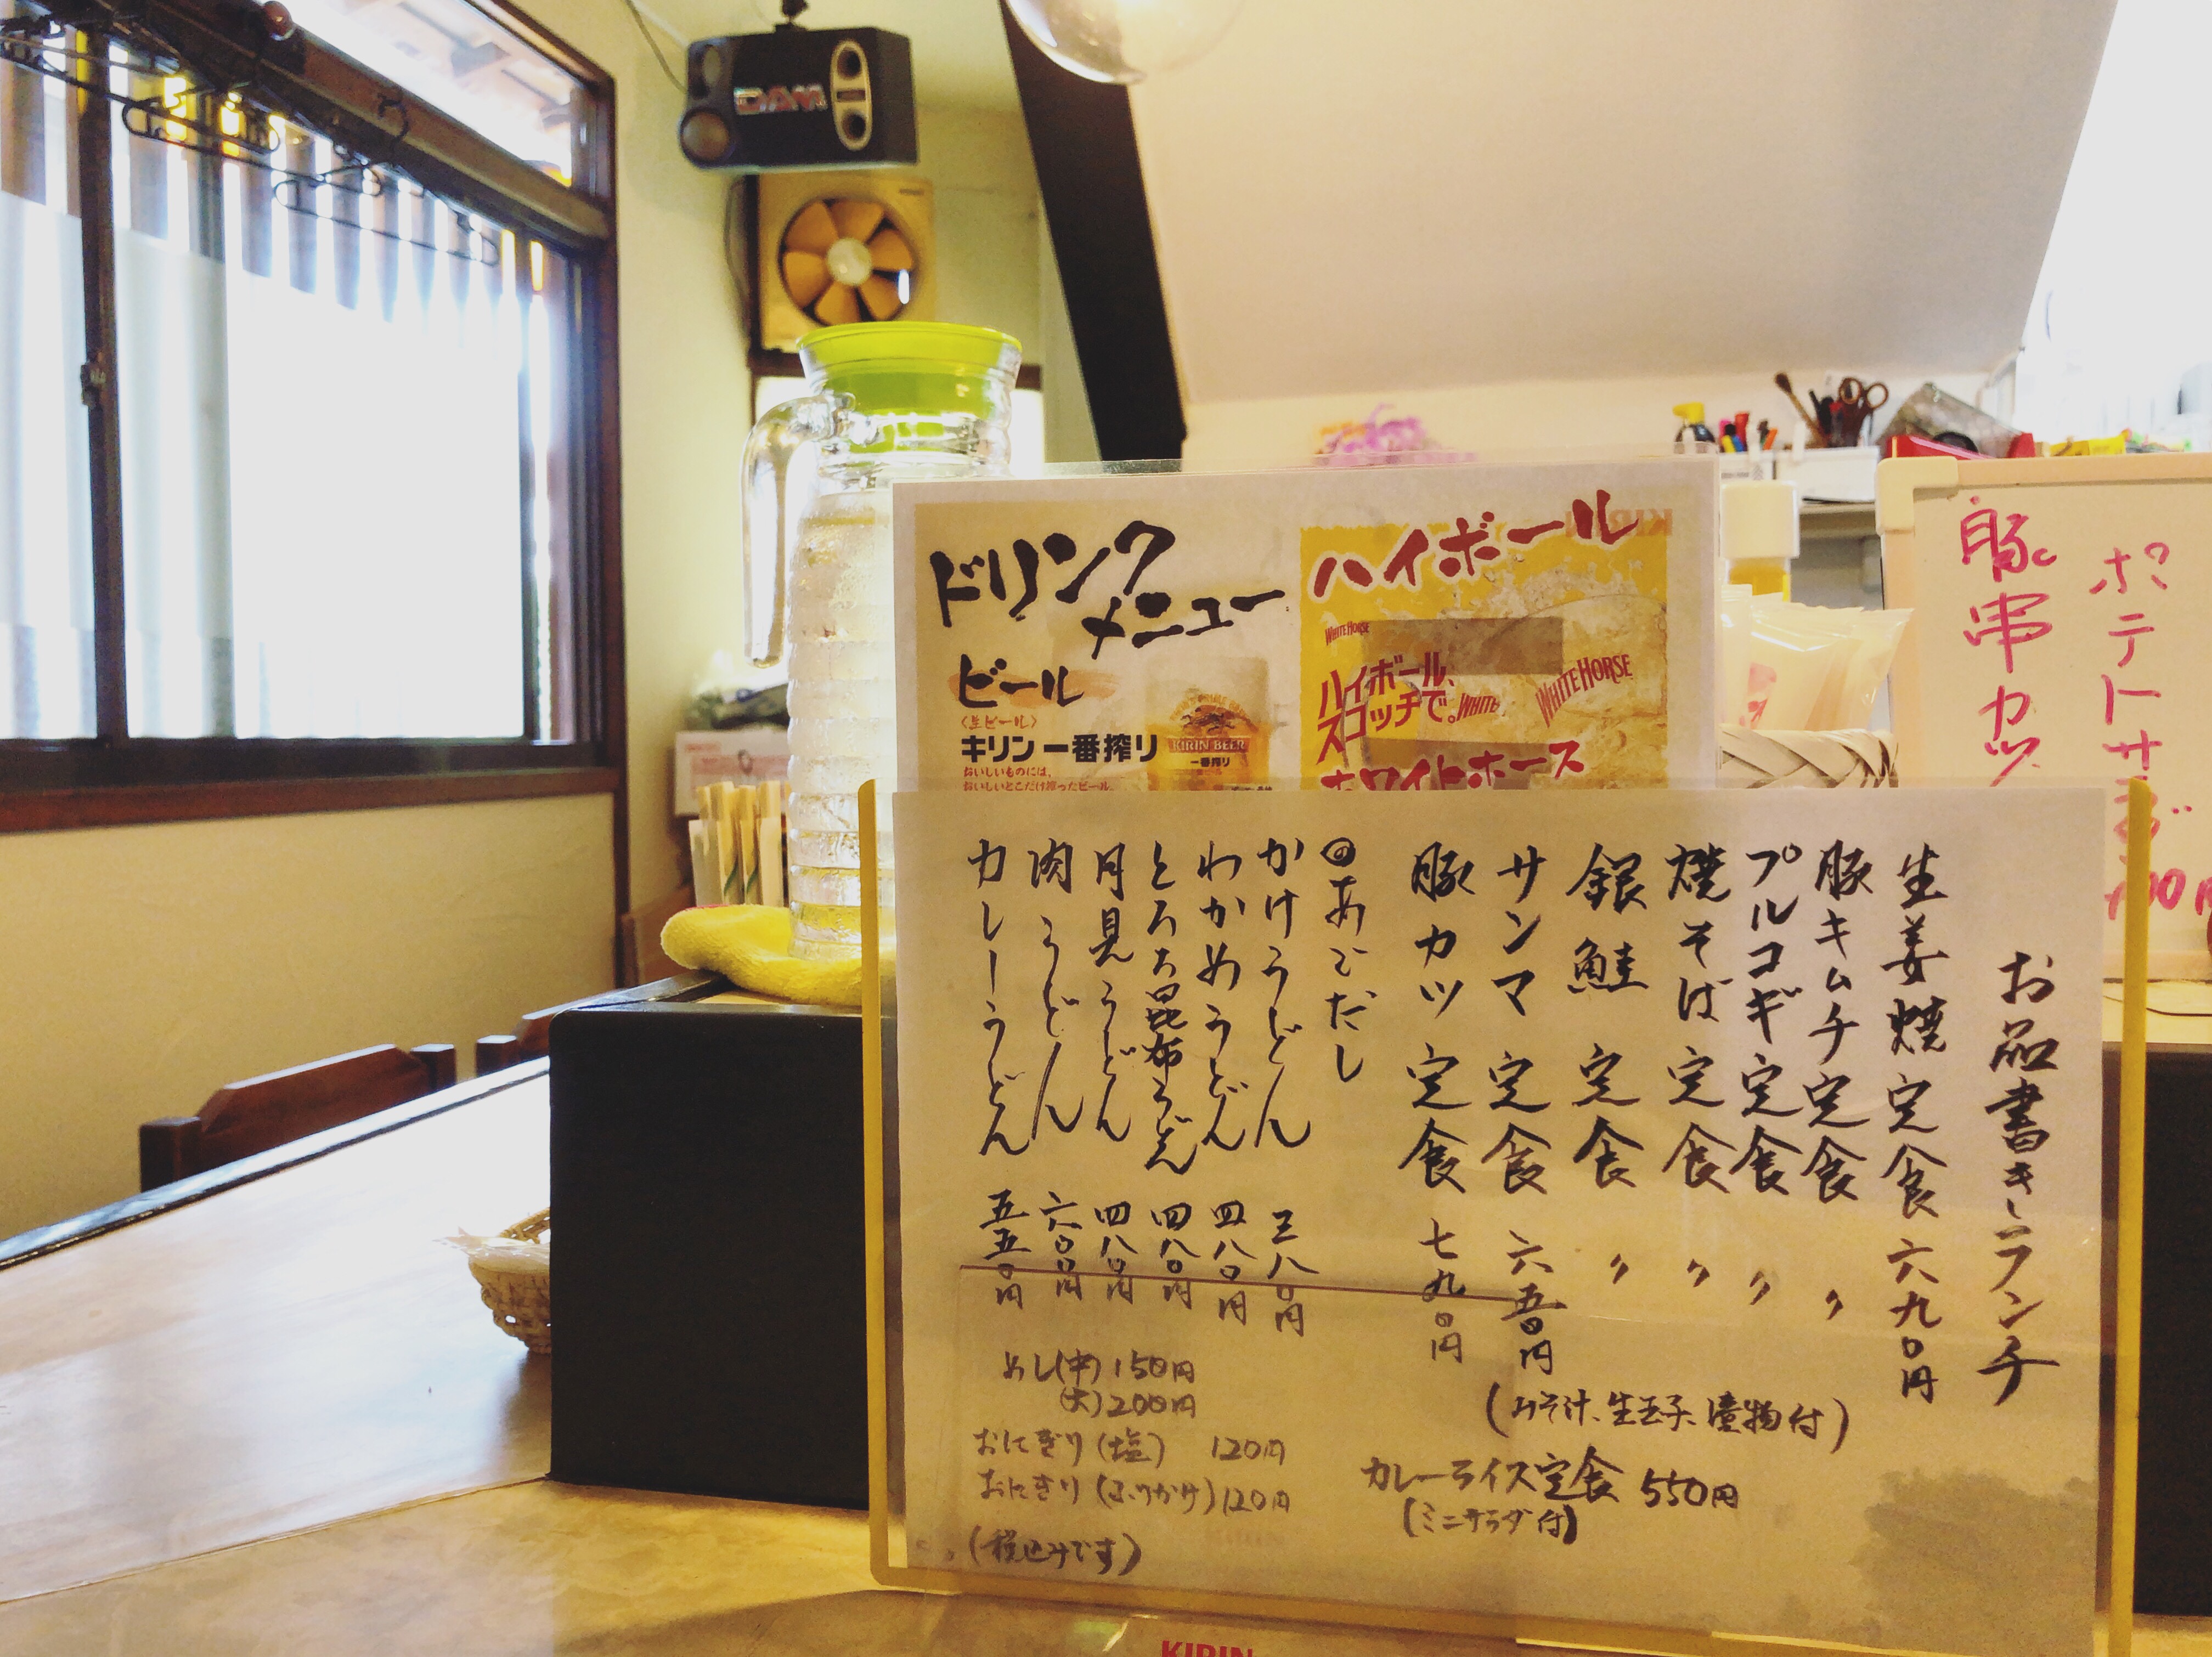 DAM
ドリンク
メニュー
ビール
〈生ビール〉
キリン一番搾り
おいしいものには、
おいしいとこだけ搾ったビール。
KIRIN BEER
一番搾り
ハイボール
WHITE HORSE
ハイボール、
スコッチで。
WHITE
WHITE HORSE
ホワイトホース
ポテトサラダ
豚串カツ
お品書きランチ
生姜焼定食 六九〇円
豚キムチ定食 〃
プルコギ定食 〃
焼そば定食 〃
銀鮭定食 〃
サンマ定食 六五〇円
豚カツ定食 七九〇円
(みそ汁、生玉子、漬物付)
カレーライス定食 550円
(ミニサラダ付)
◎あごだし
かけうどん 三八〇円
わかめうどん 四八〇円
とろろ昆布うどん 四八〇円
月見うどん 四八〇円
肉うどん 六〇〇円
カレーうどん 五五〇円
めし(中) 150円
(大) 200円
おにぎり(塩) 120円
おにぎり(ふりかけ) 120円
(税込みです)
KIRIN